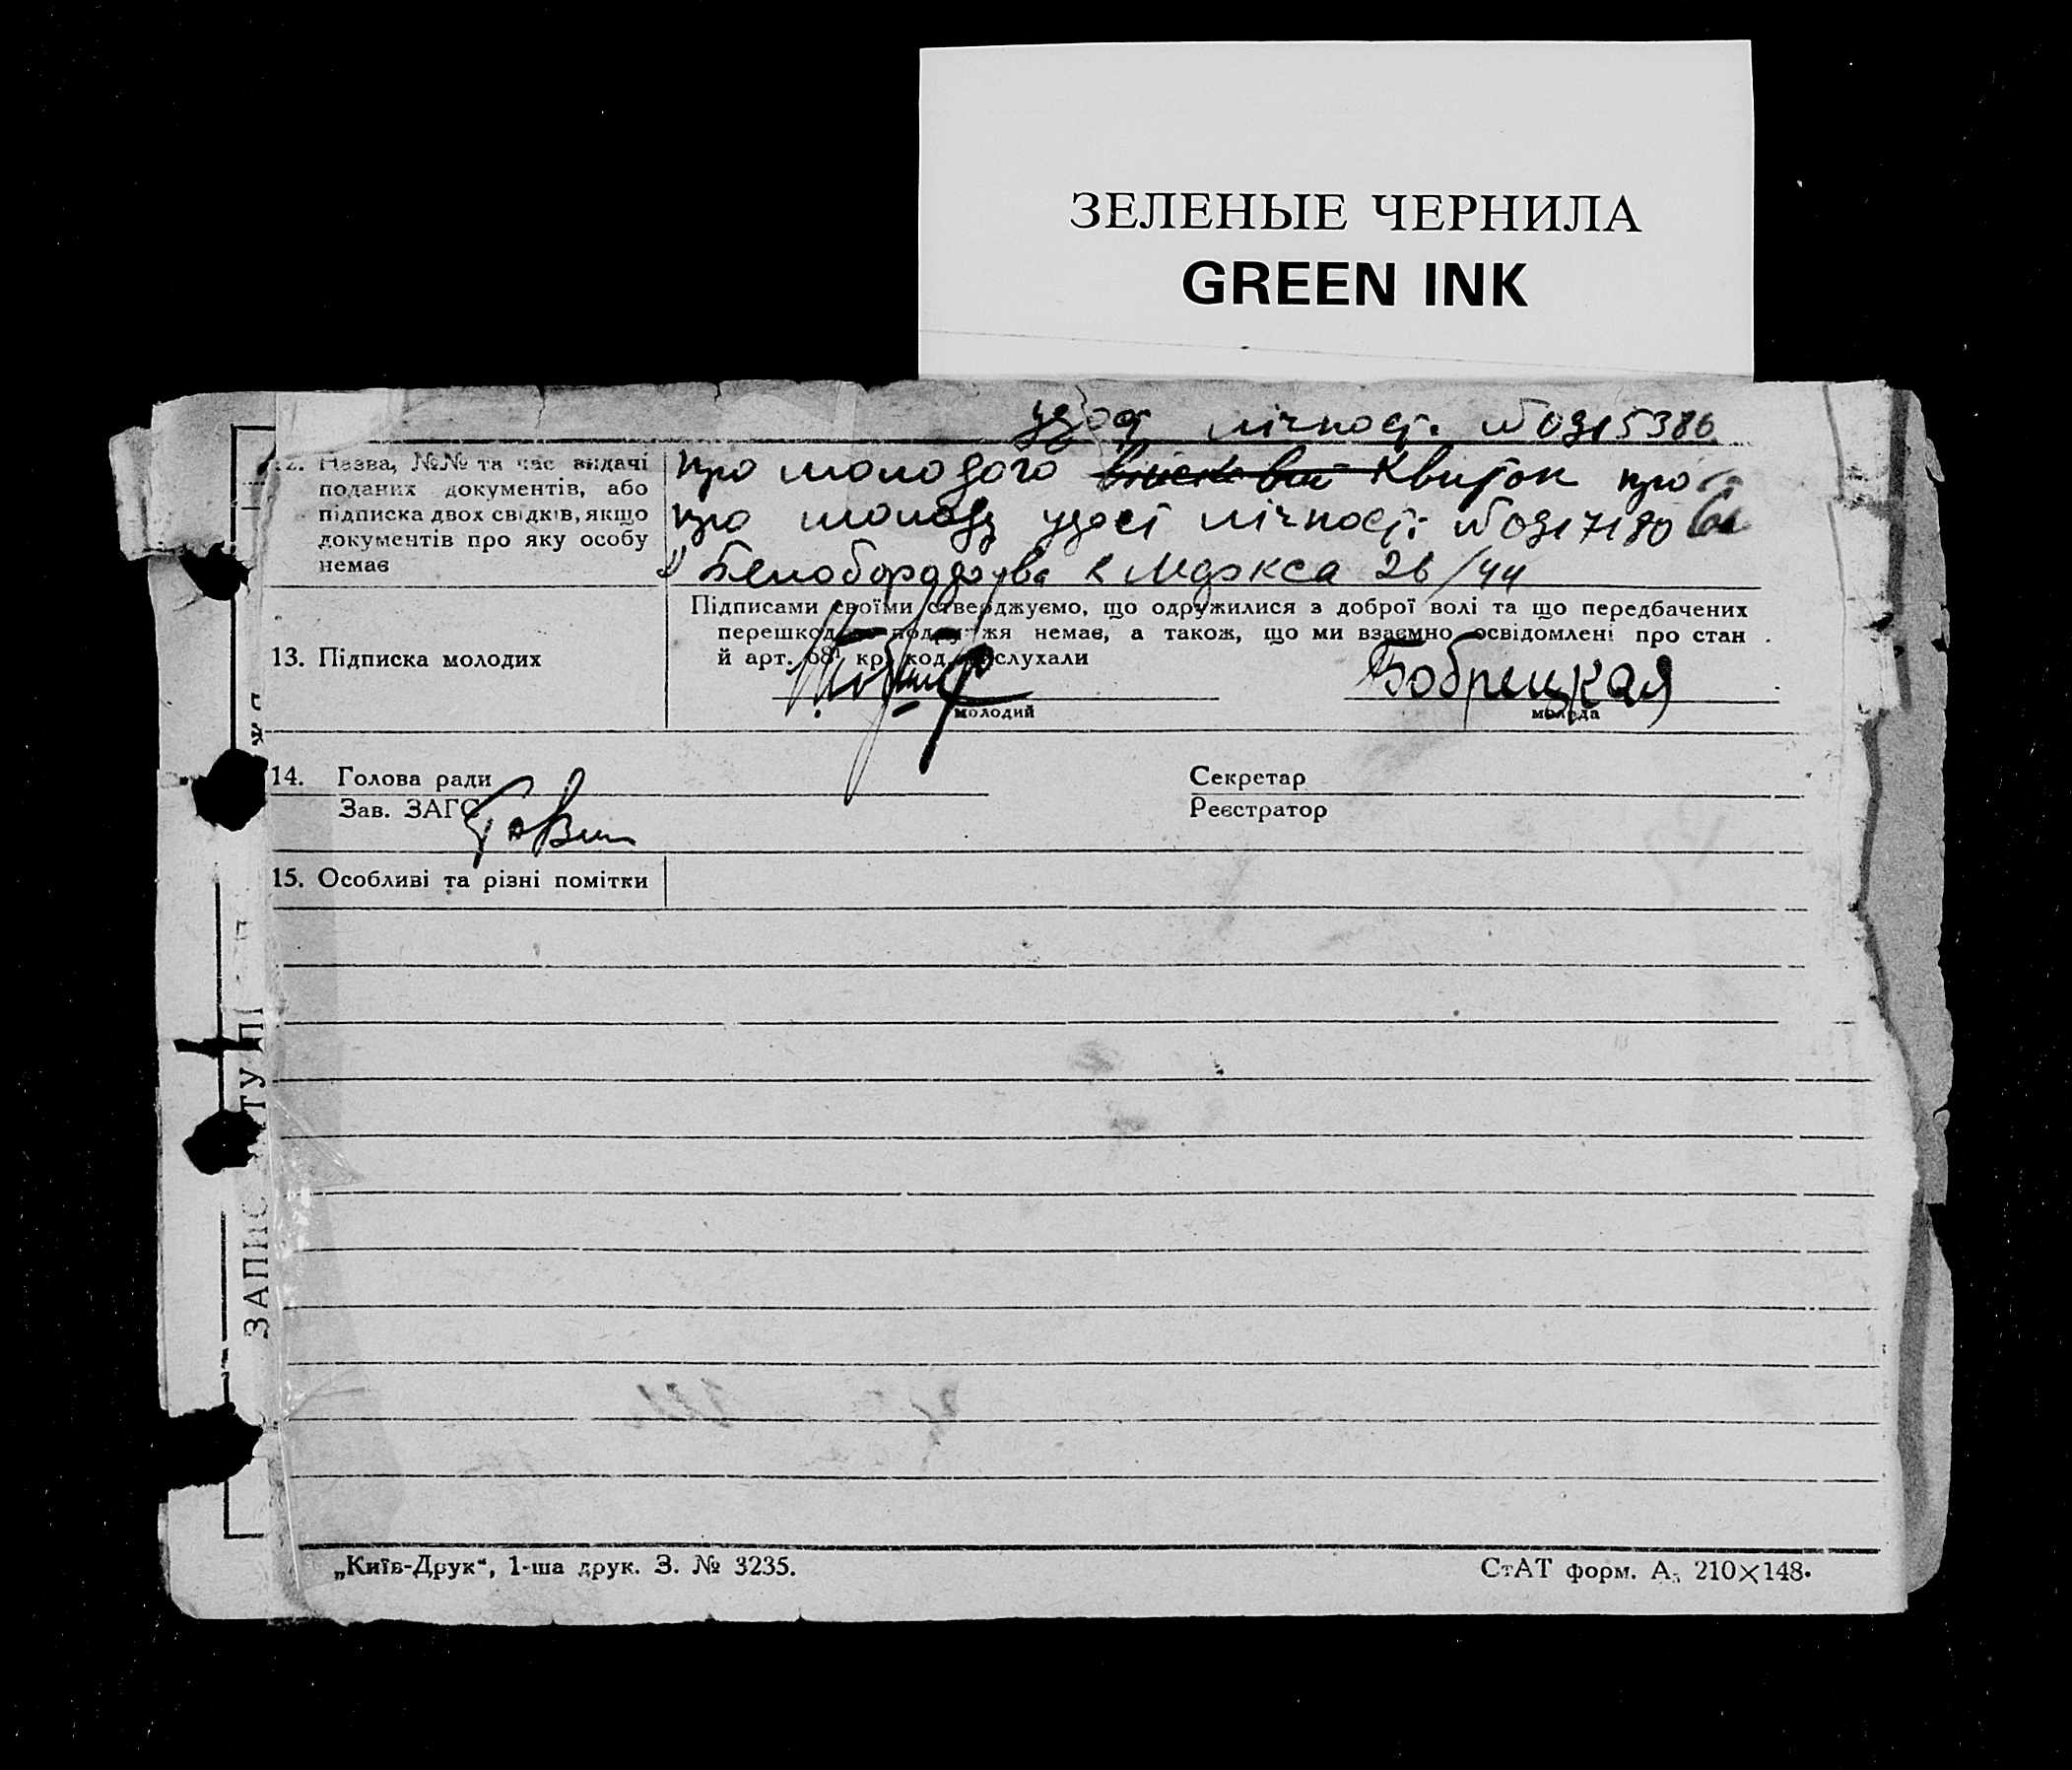 ЗЕЛЕНЫЕ ЧЕРНИЛА
GREEN INK
лічност. №0915386
12. Назва, №№ та час видачі
поданих документів, або
підписка двох свідків, якщо
документів про яку особу
немає
про молодого військовий Квиток про
про молоду удост лічност: №0917180
Белобородова К Маркса 26/44
13. Підписка молодих
Підписами своїми стверджуємо, що одружилися з доброї волі та що передбачених
перешкод подружжя немає, а також, що ми взаємно освідомлені про стан
й арт. 68¹ кр. код. вислухали
Бобрецкая
молодий
молода
14. Голова ради
Секретар
Зав. ЗАГС
Реєстратор
15. Особливі та різні помітки
ЗАПИС
„Київ-Друк“, 1-ша друк. З. № 3235.
СтАТ форм. А5 210×148.